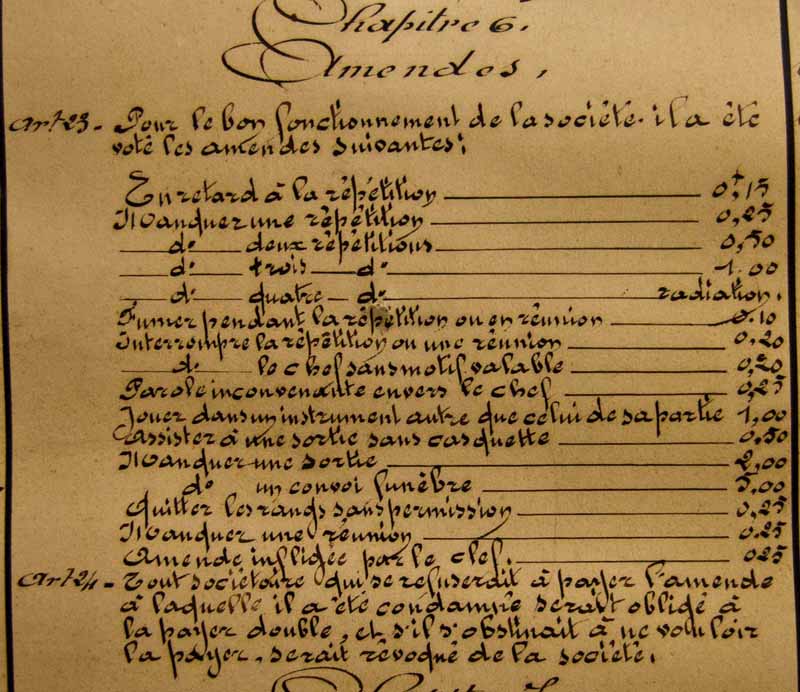 Chapitre 6.
Amendes,
Art 23 - Pour le bon fonctionnement de la société. il a été
voté les amendes suivantes:
En retard à la répétition 0f,15
Manquer une répétition 0,25
do deux répétitions 0,50
do trois do 1.00
do quatre do radiation.
Fumer pendant la répétition ou en réunion 0.10
Interrompre la répétition ou une réunion 0,20
do le chef sans motif valable 0,20
Parole inconvenante envers le chef 0,25
Jouer dans un instrument autre que celui de sa partie 1,00
Assister à une sortie sans casquette 0,50
Manquer une sortie 2,00
do un convoi funèbre 5,00
Quitter les rangs sans permission 0,25
Manquer une réunion 0.25
Amende infligée par le chef. 025
Art 24 - Tout sociétaire qui se refuserait à payer l'amende
à laquelle il a été condamné serait obligé à
la payer double, et s'il s'obstinait à ne vouloir
la payer, serait révoqué de la société.